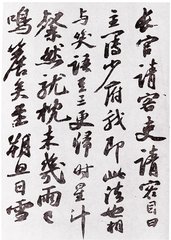 长官请客吏请客目曰
主簿少府我即此法也相
与笑语至三更归时星斗
粲然就枕未几雨已
鸣簷矣至朔旦日雪